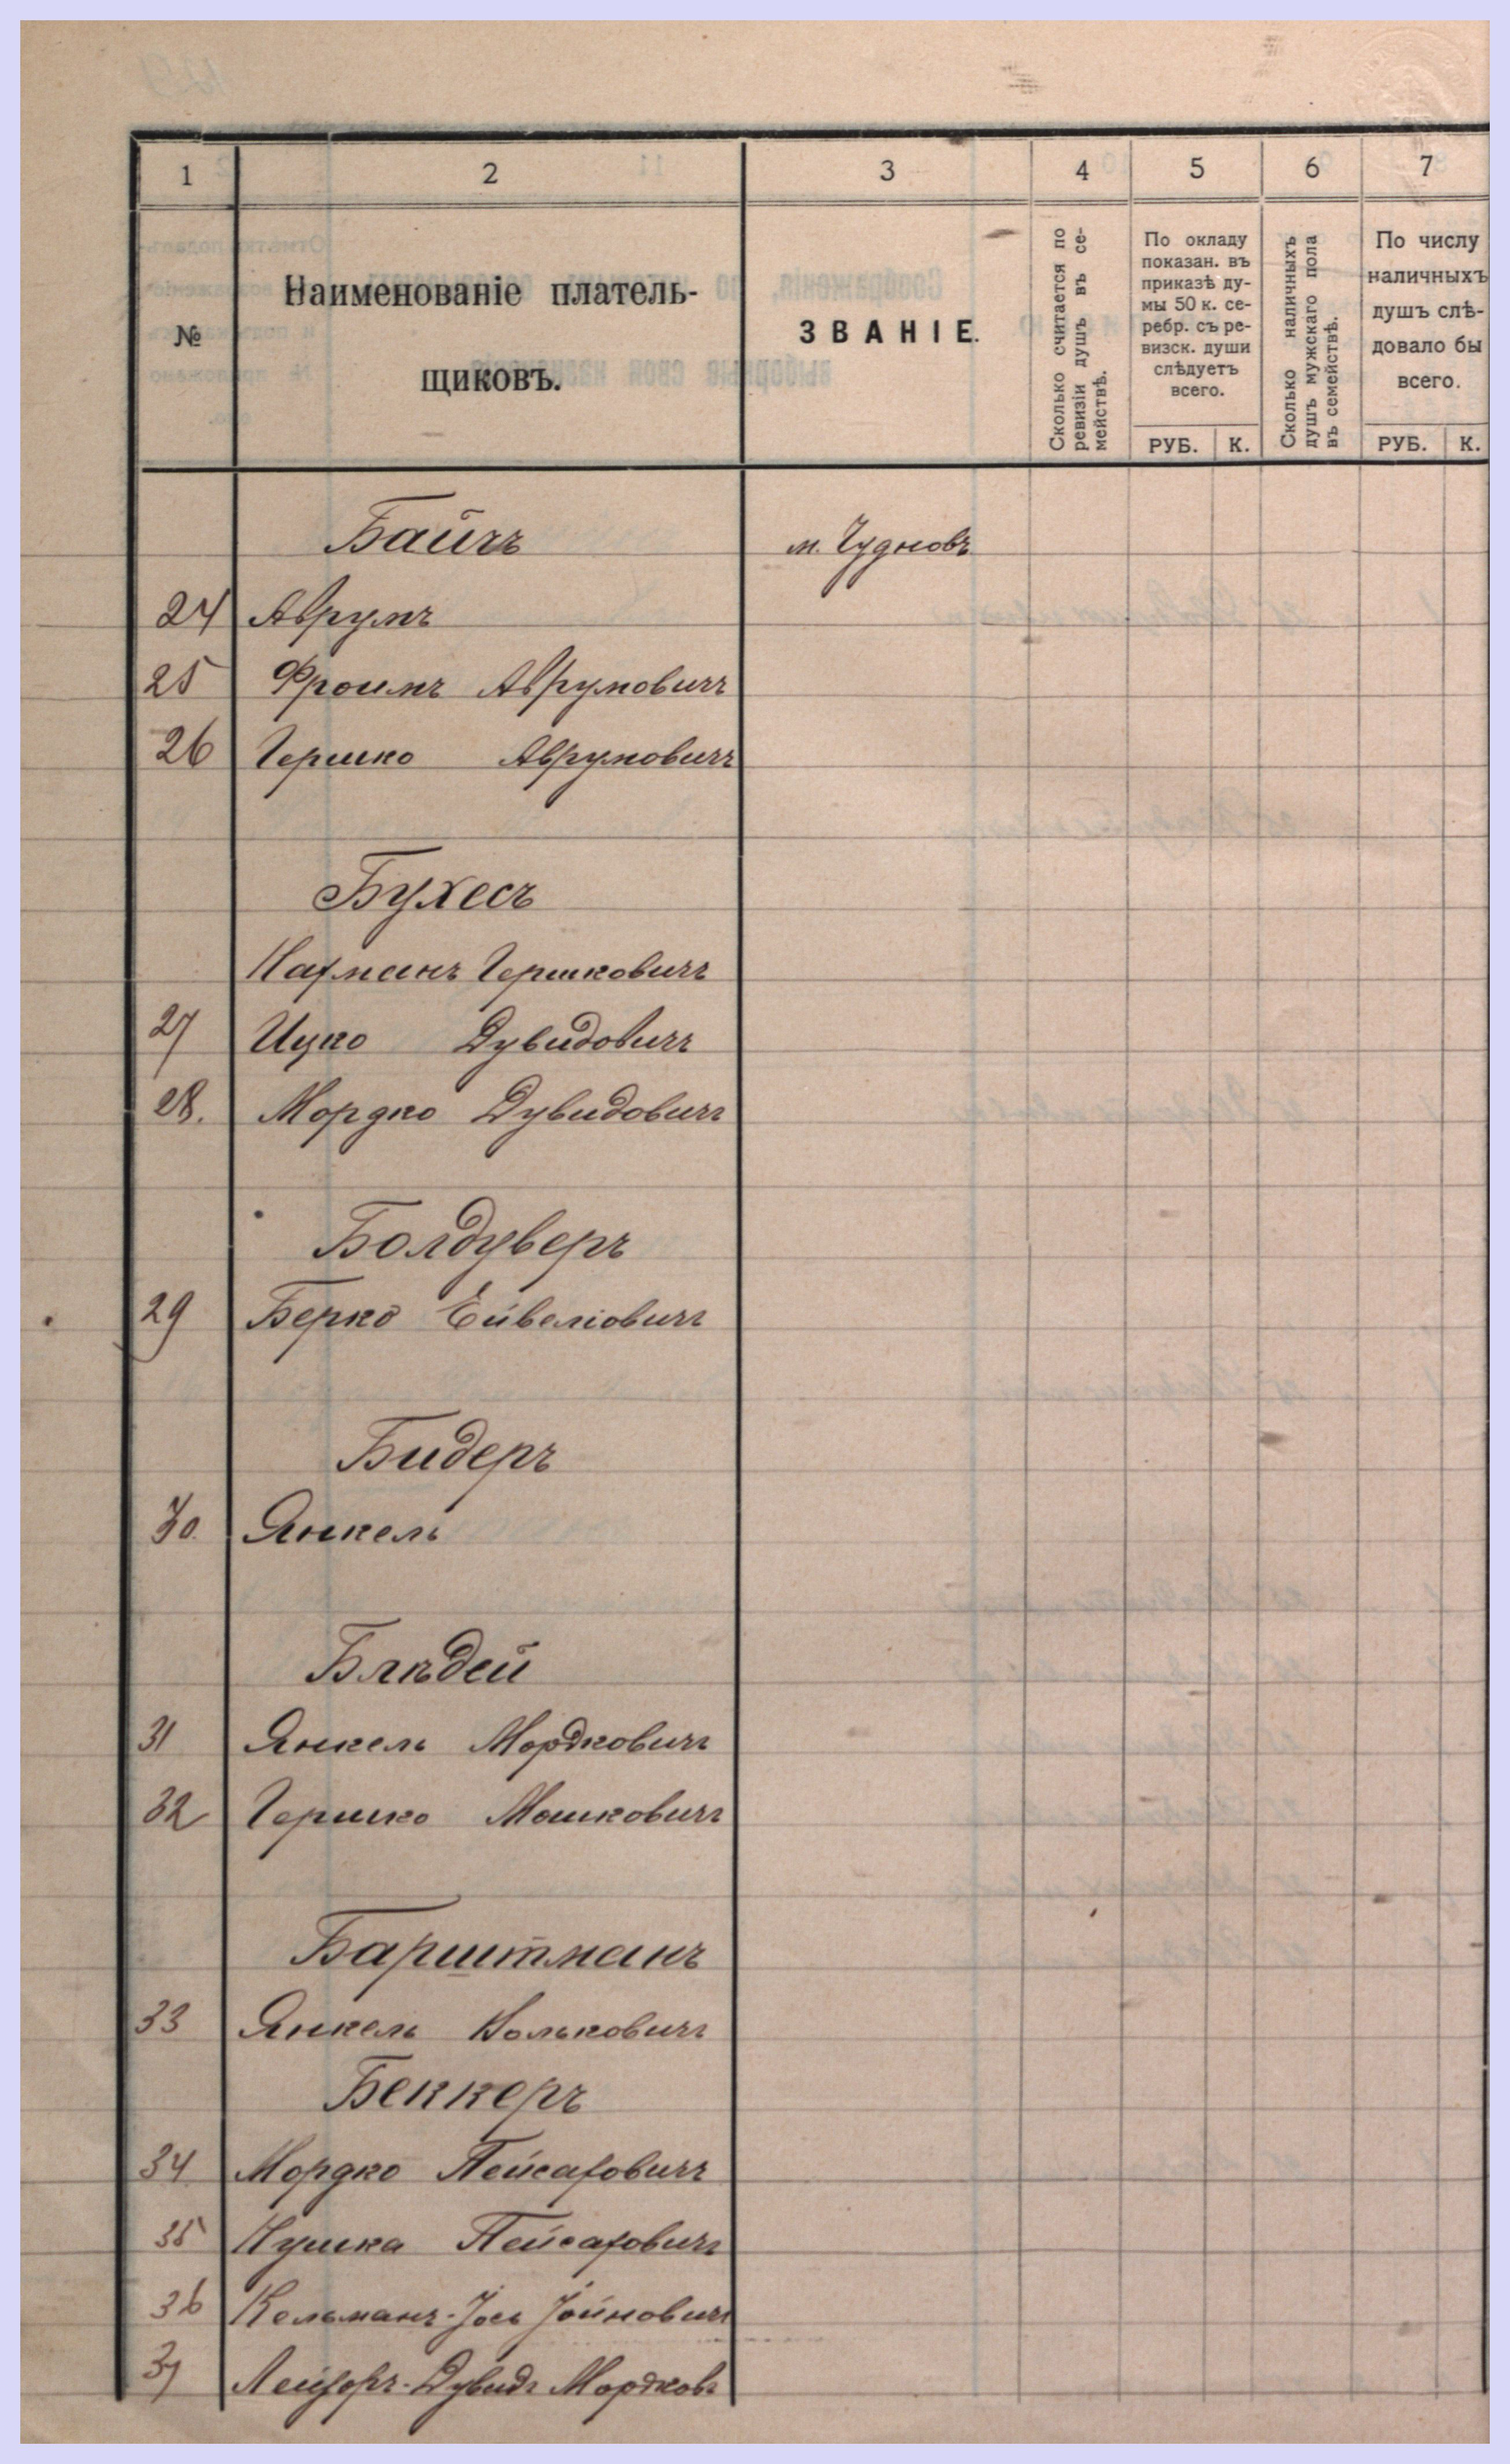 1 2 3 4 5 6 7
№
Наименованіе платель-
щиковъ.
ЗВАНІЕ.
Сколько считается по
ревизіи душъ въ се-
мействѣ.
По окладу
показан. въ
приказѣ ду-
мы 50 к. се-
ребр. съ ре-
визск. души
слѣдуетъ
всего.
РУБ. К.
Сколько наличныхъ
душъ мужскаго пола
въ семействѣ.
По числу
наличныхъ
душъ слѣ-
довало бы
всего.
РУБ. К.
Байчъ м. Чудновъ
24 Аврумъ
25 Фроимъ Аврумовичъ
26 Гершко Аврумовичъ
Бухесъ
Нахманъ Гершковичъ
27 Ицко Дувидовичъ
28. Мордко Дувидовичъ
Болдуверъ
29 Берко Ейвеліовичъ
Бидеръ
30. Янкель
Блѣдей
31 Янкель Мордковичъ
32 Гершко Мошковичъ
Барштманъ
33 Янкель Вольковичъ
Беккеръ
34 Мордко Пейсаховичъ
35 Нушка Пейсаховичъ
36 Кельманъ-Іось Іойновичъ
37 Лейзоръ-Дувидъ Мордковъ